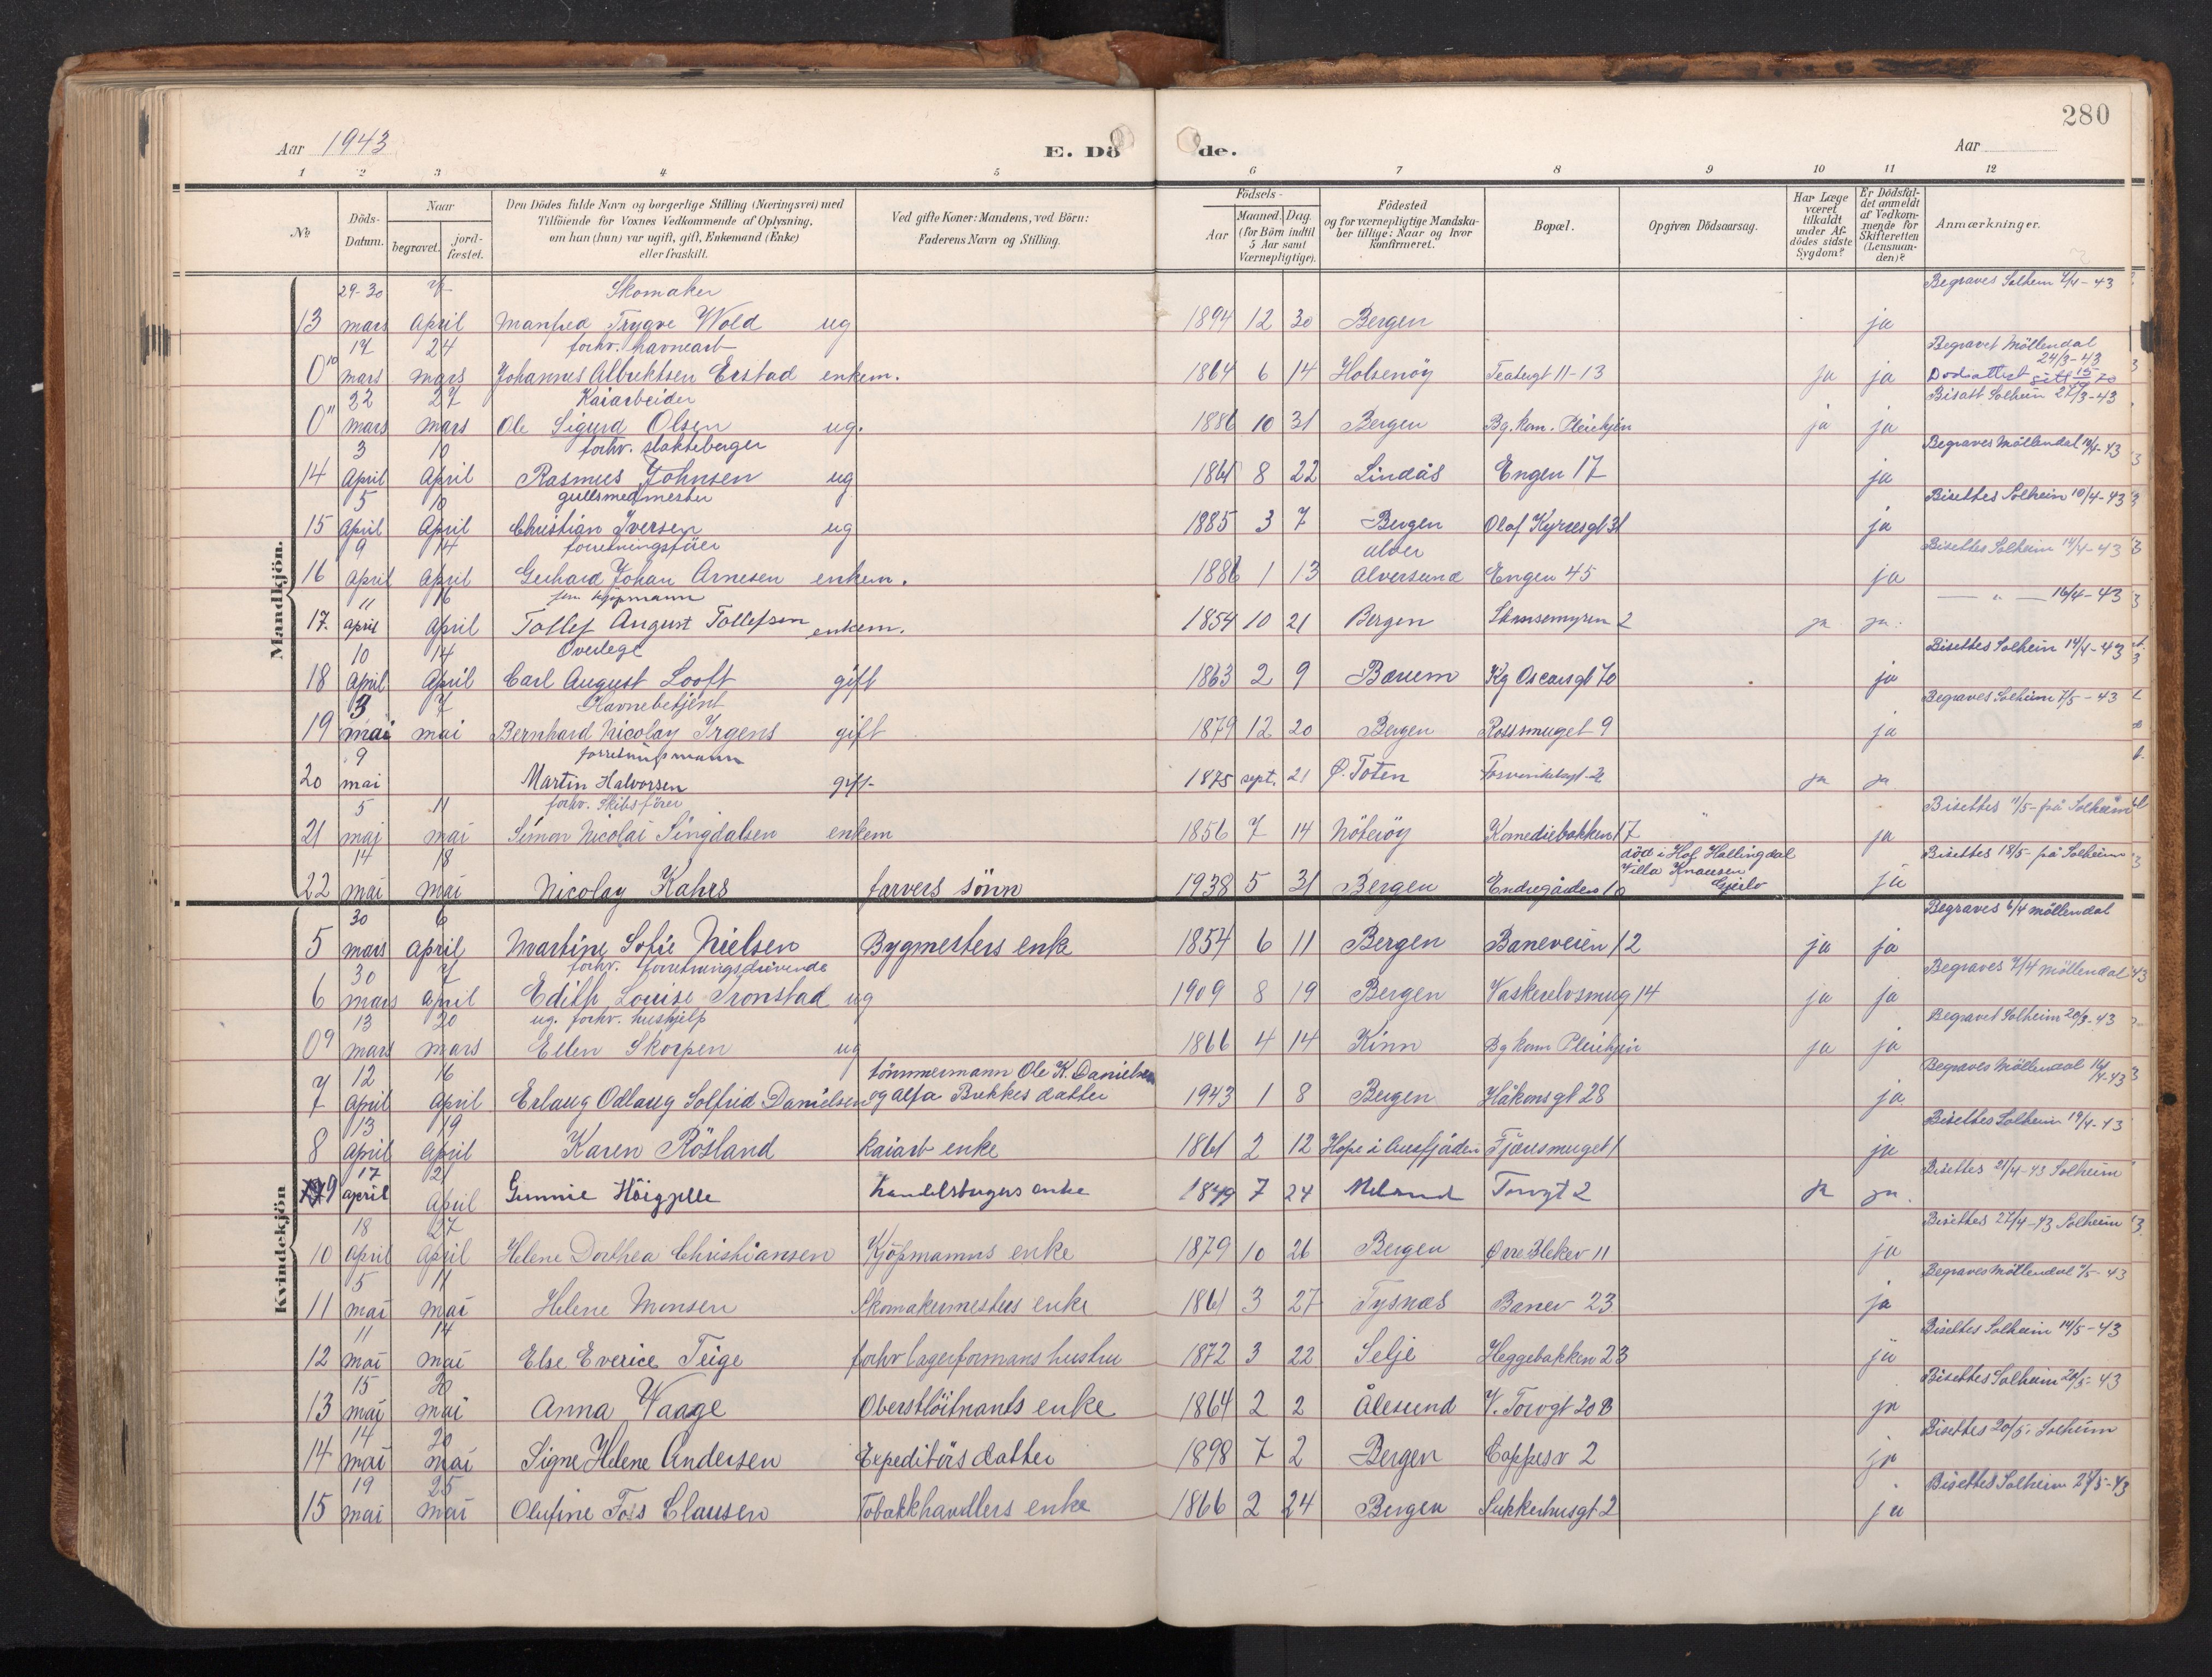 280
Aar 1943
E. Dö
de.
Aar
1 2 3 4 5 6 7 8 9 10 11 12
No
Döds-Datum.
Naar
begravet.
jord-fæstet.
Den Dödes fulde Navn og borgerlige Stilling (Næringsvei) med
Tilföiende for Voxnes Vedkommende af Oplysning,
om han (hun) var ugift, gift, Enkemand (Enke)
eller fraskilt.
Ved gifte Koner: Mandens, ved Börn:
Faderens Navn og Stilling.
Födsels-
Aar
Maaned. Dag.
(for Börn indtil
5 Aar samt
Værnepligtige).
Födested
og for værnepligtige Mandska-
ber tillige: Naar og hvor
konfirmeret.
Bopæl.
Opgiven Dödsaarsag.
Har Læge
været
tilkaldt
under Af-
dödes sidste
Sygdom?
Er Dödsfal-
det anmeldt
af Vedkom-
mende for
Skifteretten
(Lensman-
den)?
Anmærkninger.
Mandkjön.
29-30 7/ Skomaker Begraves Solheim 7/4-43
13 mars April Manfred Trygve Wold ug 1894 12 30 Bergen ja
17 24 forhv. havnearb Begravet Möllendal 24/3-43
0 10 mars mars Johannes Albrektsen Erstad enkem. 1864 6 14 Holsenöy Teatergt 11-13 ja ja Dødsattest
22 27 Kaiarbeider Bisatt Solheim 27/3-43
0 11 mars mars Ole Sigurd Olsen ug. 1886 10 31 Bergen Bg. kom. Pleiehjem ja ja
3 10 forhv. slakteborger Begraves Möllendal 10/4-43
14 April April Rasmus Johnsen ug 1861 8 22 Lindås Engen 17 ja
5 10 gullsmedmester Bisettes Solheim 10/4-43
15 April April Christian Iversen ug 1885 3 7 Bergen Olaf Kyrresgt 31 ja
9 14 forretningsförer Alver Bisettes Solheim 14/4-43
16 April April Gerhard Johan Arnesen enkem. 1886 1 13 Alversund Engen 45 ja
11 16 kjøpmann — " — 16/4-43
17. april April Tollef August Tollefsen enkem. 1854 10 21 Bergen Skansemyren 2 ja ja.
10 14 Overlege Bisettes Solheim 14/4-43
18 April April Carl August Looft gift 1863 2 9 Bærum Kg Oscarsgt 70 ja
3 7 Havnebetjent Begraves Solheim 7/5-43
19 mai mai Bernhard Nicolay Irgens gift 1879 12 20 Bergen Rossmuget 9 ja
9 forretningsmann
20 mai Martin Halvorsen gift 1875 sept. 21 Ø. Toten ja ja
5 11 forhv. Skibsförer Bisettes 11/5- på Solheim
21 mai mai Simon Nicolai Singdalsen enkem 1856 7 14 Nöteröy Komediebakken 17 ja
14 18 död i Hol Hallingdal Bisettes 18/5- på Solheim
22 mai mai Nicolay Kahrs farvers sönn 1938 5 31 Bergen Endregårdens 10 Villa Knausen Geilo ja
Kvindekjön
30 6 Begraves 6/4 möllendal
5 mars april Martine Sofie Nielsen Bygmesters enke 1854 6 11 Bergen Baneveien 12 ja ja
30 7 forhv. forretningsdrivende Begraves 7/4 möllendal 43
6 mars april Edith Louise Tronstad ug 1909 8 19 Bergen Vaskerelvsmug 14 ja ja
13 20 ug. forhv. hushjelp Begravet Solheim 20/3-43
09 mars mars Ellen Skorpen ug 1866 4 14 Kinn Bg kom Pleiehjem ja ja
12 16 tömmermann Ole K. Danielsen Begraves Möllendal 16/4-43
7 April April Erlaug Odlaug Solfrid Danielsen og Alfa Brekkes datter 1943 1 8 Bergen Håkonsgt 28 ja
13 19 Bisettes Solheim 19/4-43
8 April April Karen Rösland kaiarb enke 1861 2 12 Hope i Ausfjorden Fjæusmuget 1 ja
17 21 Bisettes 21/4-43 Solheim
9 april April Gunnie handelsborgers enke 1849 7 24 Meland Torvgt 2 ja ja.
18 27 Bisettes 27/4-43 Solheim
10 April April Helene Dorthea Christiansen Kjöpmanns enke 1879 10 26 Bergen Øvre Blekev 11 ja
5 11 Begraves Möllendal 11/5-43
11 mai mai Helene Monsen Skomakermesters enke 1861 3 27 Tysnæs Banev 23 ja
11 14 Bisettes Solheim 14/5-43
12 mai mai Else Everice Teige forhv lagerformans hustru 1872 3 22 Selje Heggebakken 23 ja
15 20 Bisettes Solheim 20/5-43
13 mai mai Anna Waage Oberstlöitnants enke 1864 2 2 Ålesund V. Torvgt 20B ja
14 20 Bisettes 20/5. Solheim
14 mai mai Signe Helene Andersen Expeditörs datter 1898 7 2 Bergen Coppesv 2 ja
19 25 Bisettes Solheim 25/5-43
15 mai mai Olufine Fos Clausen Tobakkhandlers enke 1866 2 24 Bergen Sukkerhusgt 2 ja